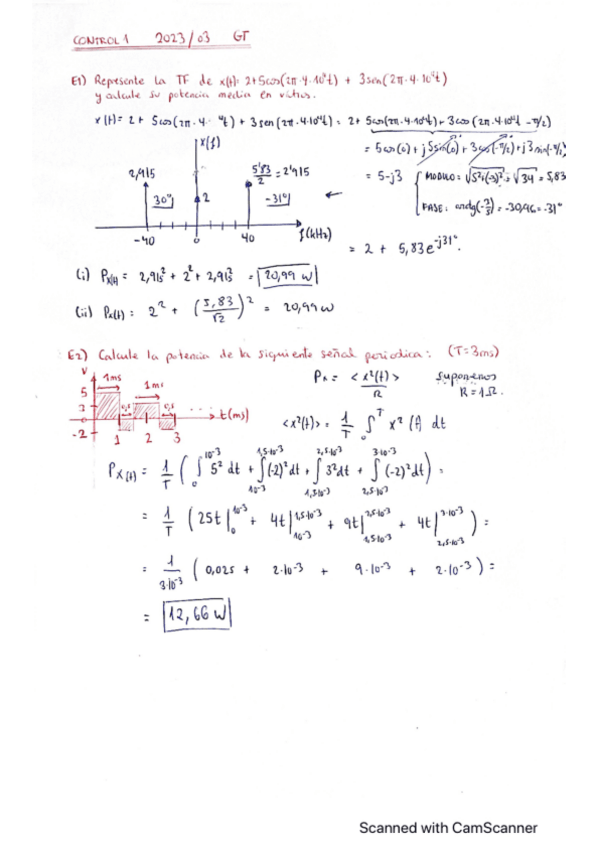 CONTROL 1 2023/03 GT
E1) Represente la TF de x(t): 2+5cos(2π·4·10⁴t) + 3sen(2π·4·10⁴t)
y calcule su potencia media en vatios.
x(t)= 2 + 5cos(2π·4· ⁴t) + 3sen(2π·4·10⁴t) = 2+ 5cos(2π·4·10⁴t)+3cos(2π·4·10⁴t -π/2)
= 5cos(0)+j5sin(0)+3cos(-π/2)+j3sin(-π/2)
= 5-j3
MODULO: √5²+(-3)² = √34 = 5,83
FASE: arctg(-3/5) = -30,96 = -31°
= 2 + 5,83e^-j31°
X(f)
2,915
30°
2
5'83/2 = 2'915
-31°
-40 0 40 f(kHz)
(i) Px(t) = 2,915² + 2² + 2,915² = 20,99 W
(ii) Px(t): 2² + (5,83/√2)² = 20,99 W
E2) Calcule la potencia de la siguiente señal periodica: (T=3ms)
V
1ms
1ms
5
3
0
-2
0,5
0,5
1 2 3
t(ms)
Px = <x²(t)>/R
suponemos
R=1Ω.
<x²(t)> = 1/T ∫₀ᵀ x²(t) dt
Px(t) = 1/T ( ∫₀^10⁻³ 5² dt + ∫_10⁻³^1,5·10⁻³ (-2)² dt + ∫_1,5·10⁻³^2,5·10⁻³ 3² dt + ∫_2,5·10⁻³^3·10⁻³ (-2)² dt ) =
= 1/T ( 25t|₀^10⁻³ + 4t|_10⁻³^1,5·10⁻³ + 9t|_1,5·10⁻³^2,5·10⁻³ + 4t|_2,5·10⁻³^3·10⁻³ ) =
= 1/3·10⁻³ ( 0,025 + 2·10⁻³ + 9·10⁻³ + 2·10⁻³ ) =
= 12,66 W
Scanned with CamScanner